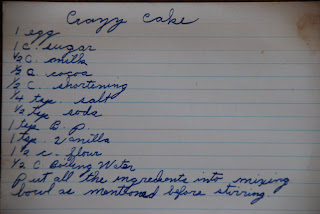 Crazy Cake
1 egg
1 C. sugar
1/2 C. milk
1/2 C. cocoa
1/2 C. shortening
1/4 tsp. salt
1/2 tsp soda
1 tsp B. P.
1 tsp. Vanilla
1 1/2 c. flour
1/2 C Boiling Water
Put all the ingredients into mixing
bowl as mentioned before stirring.